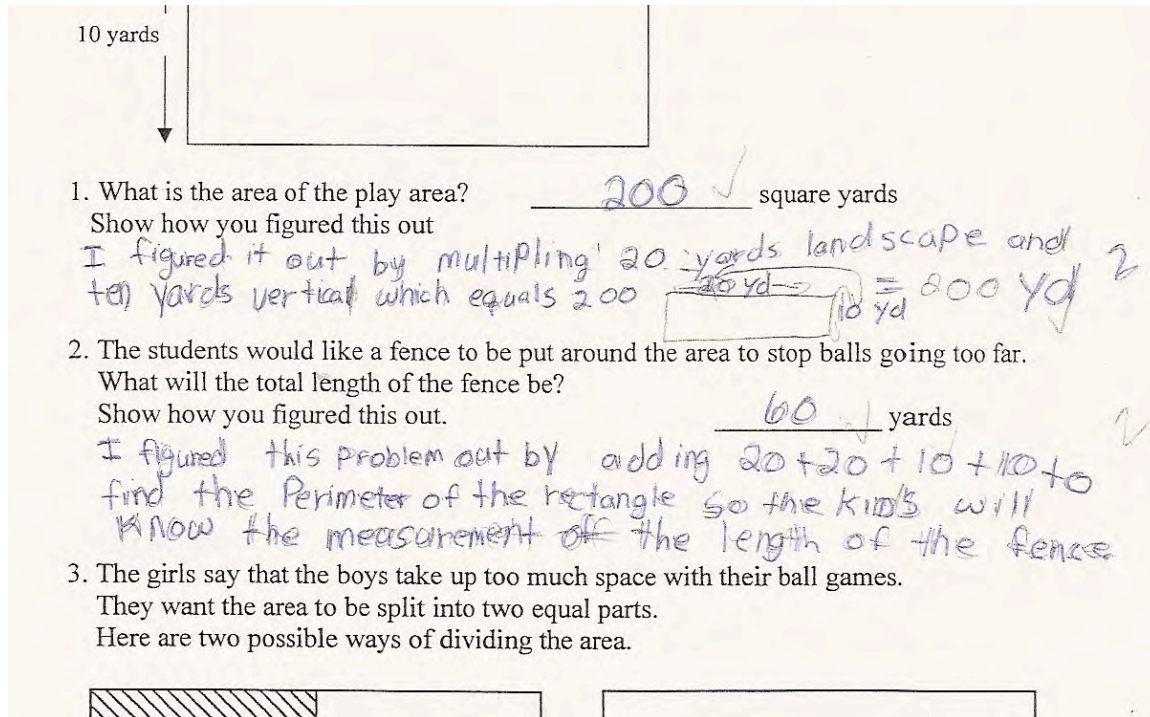 10 yards
1. What is the area of the play area? 200 ✓ square yards
Show how you figured this out
I figured it out by multipling 20 yards landscape and 2
ten yards vertical which equals 200 20 yd 10 yd = 200 yd
2. The students would like a fence to be put around the area to stop balls going too far.
What will the total length of the fence be?
Show how you figured this out. 60 ✓ yards 2
I figured this problem out by adding 20 + 20 + 10 + 10 to
find the Perimeter of the rectangle so the kids will
know the measurement off the length of the fence
3. The girls say that the boys take up too much space with their ball games.
They want the area to be split into two equal parts.
Here are two possible ways of dividing the area.